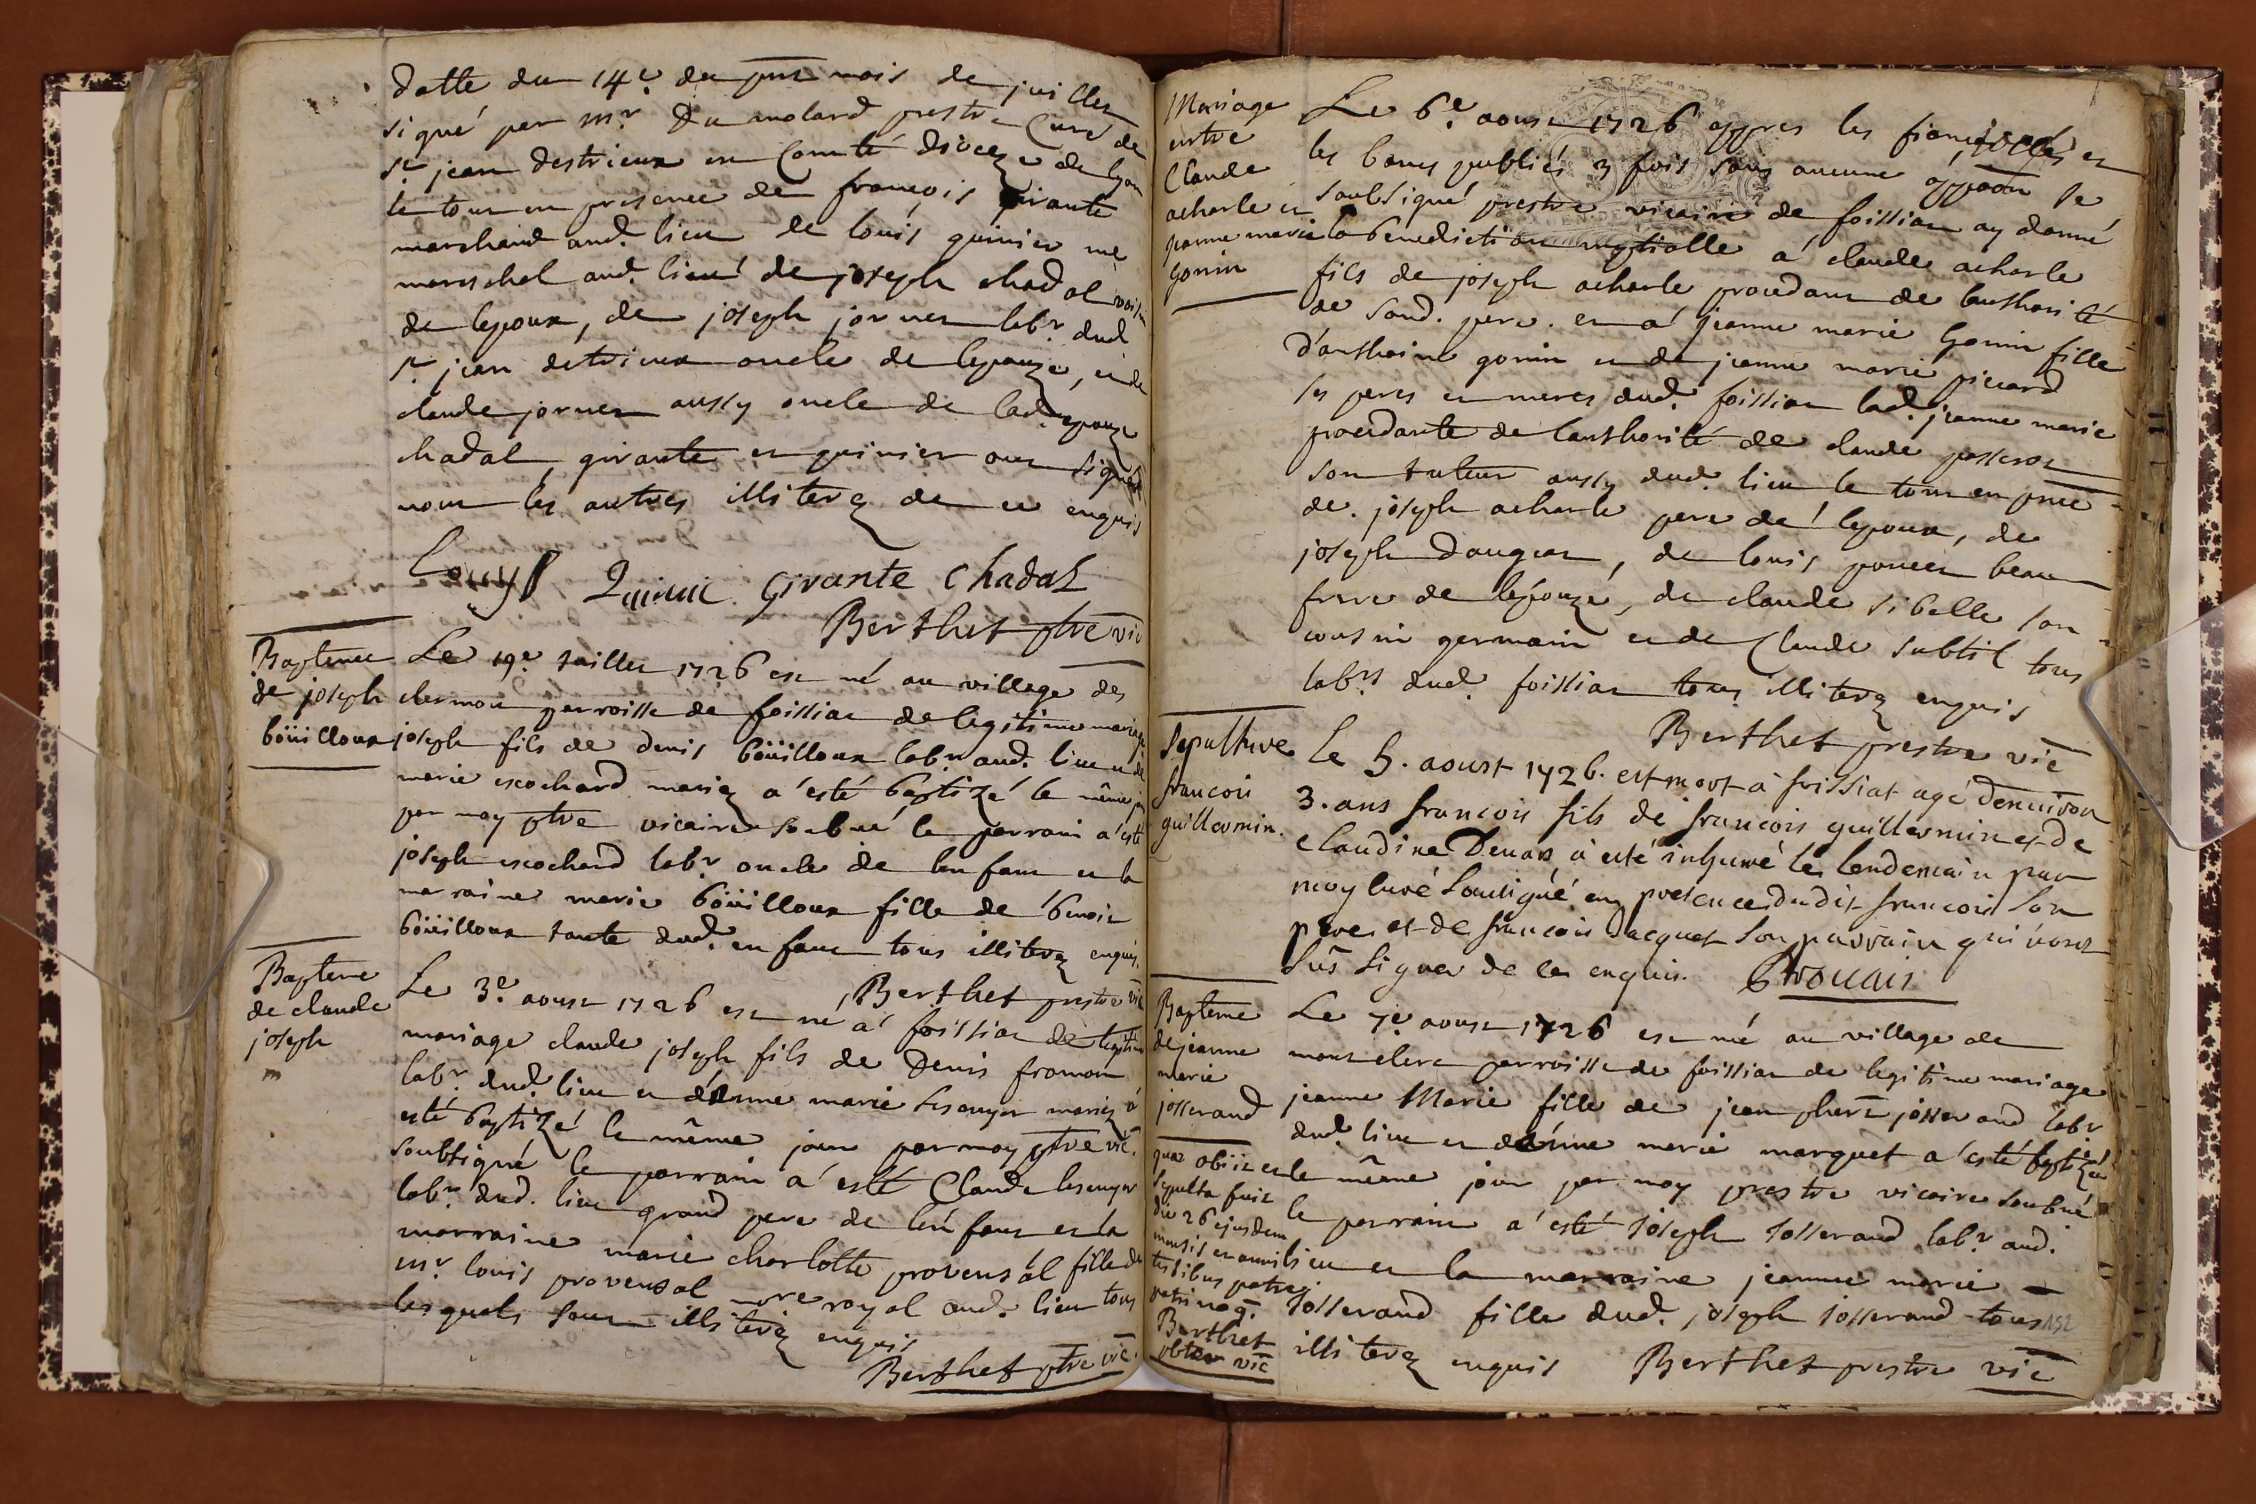 datte du 14e du pnt mois de juillet
signé par mr Du molard prestre Curé de
st jean destrieux en Comté dioceze de lyon
le tout en presence de françois girante
marchand aud. lieu de louis quinier me
mareschal aud. lieu de joseph chadal voisin
de lepoux, de joseph jornet labr dud
st jean detrieux oncle de lepouze, et de
claude jornet aussy oncle de lad. epouze
chadal, girante et quinier ont signé
non les autres illiterez de ce enquis
Louys Quinie girante Chadal
Berthet ptre vic
Bapteme
de joseph
boüilloux
Le 19e juillet 1726 est né au village des
clermon parroisse de foissiat de legitime mariage
joseph fils de denis boüilloux labr aud. lieu et de
marie escochard mariez a esté baptizé le même jour
par moy ptre vicaire soubné le parrain a esté
joseph escochard labr oncle de len fant et la
marraine marie boüilloux fille de benoit
boüilloux tante dud. en fant tous illiterez enquis.
Berthet prestre vic
Bapteme
de claude
joseph
Le 3e aoust 1726 est né a foissiat de legitime
mariage claude joseph fils de Denis fromont
labr dud. lieu et danne marie lesenyer mariez a
esté baptizé le même jour par moy ptre vic.
soubsigné le parrain a esté Claude lesenyer
labr dud. lieu grand pere de len fant et la
marraine marie charlotte provensal fille de
mr louis provensal nore royal aud. lieu tous
lesquels sont illiterez enquis
Berthet ptre vic.
Mariage
entre
Claude
acharle et
jeanne marie
gonin
Le 6e aoust 1726 appres les fiançailles et
les bancs publiés 3 fois sans aucune oppaon je
soubsigné prestre vicaire de foissiat ay donné
la benediction nuptialle a claude acharle
fils de joseph acharle procedant de lauthorité
de sond. pere. et a jeanne marie gonin fille
d'anthoine gonin et de jeanne marie piccard
ses peres et meres dud. foissiat lad. jeanne marie
procedante de lauthorité de claude posserot
son tuteur aussy dud. lieu le tout en pnce
de joseph acharle pere de lepoux, de
joseph dangeat, de louis poncet beau
frere de lépouzé, de claude sibelle son
cousin germain et de Claude subtil tous
labrs dud. foissiat tous illiterez enquis
Berthet prestre vic
sepulture
francois
guillermin.
le 5. aoust 1726. est mort à foissiat agé denviron
3. ans francois fils de francois guillermin et de
claudine Denars à esté inhumé le lendemain par
moy curé soussigné en presence dudit francois son
pere et de francois Jacquet son parrain qui n'ont
sus signer de ce enquis. Grouais
Bapteme
de jeanne
marie
josserand
Le 7e aoust 1726 est né au village de
mont clerc parroisse de foissiat de legitime mariage
jeanne Marie fille de jean phert josserand labr
dud. lieu et danne marie marguet a esté baptizée
le même jour par moy prestre vicaire soubné
le parrain a esté joseph josserand labr aud.
lieu et la marraine jeanne marie
josserand fille dud. joseph josserand tous
illiterez enquis Berthet prestre vic
quae obiit et
sepulta fuit
die 26 ejusdem
mensis et anni
testibus patre
patrinoq.
Berthet
pbter vic
152